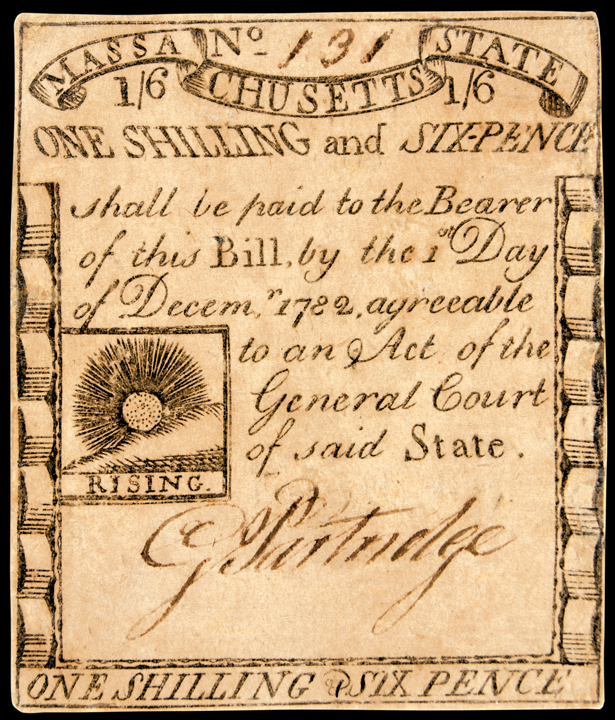 MASSA Nº 131 STATE
1/6 CHUSETTS 1/6
ONE SHILLING and SIX-PENCE
shall be paid to the Bearer
of this Bill, by the 1st Day
of Decem,r 1782, agreeable
to an Act of the
General Court
of said State.
RISING.
G Partridge
ONE SHILLING & SIX PENCE